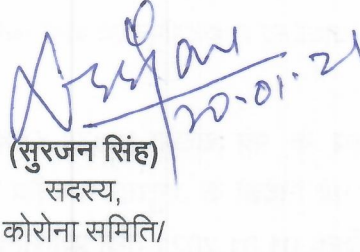 20.01.21
(सुरजन सिंह)
सदस्य,
कोरोना समिति/